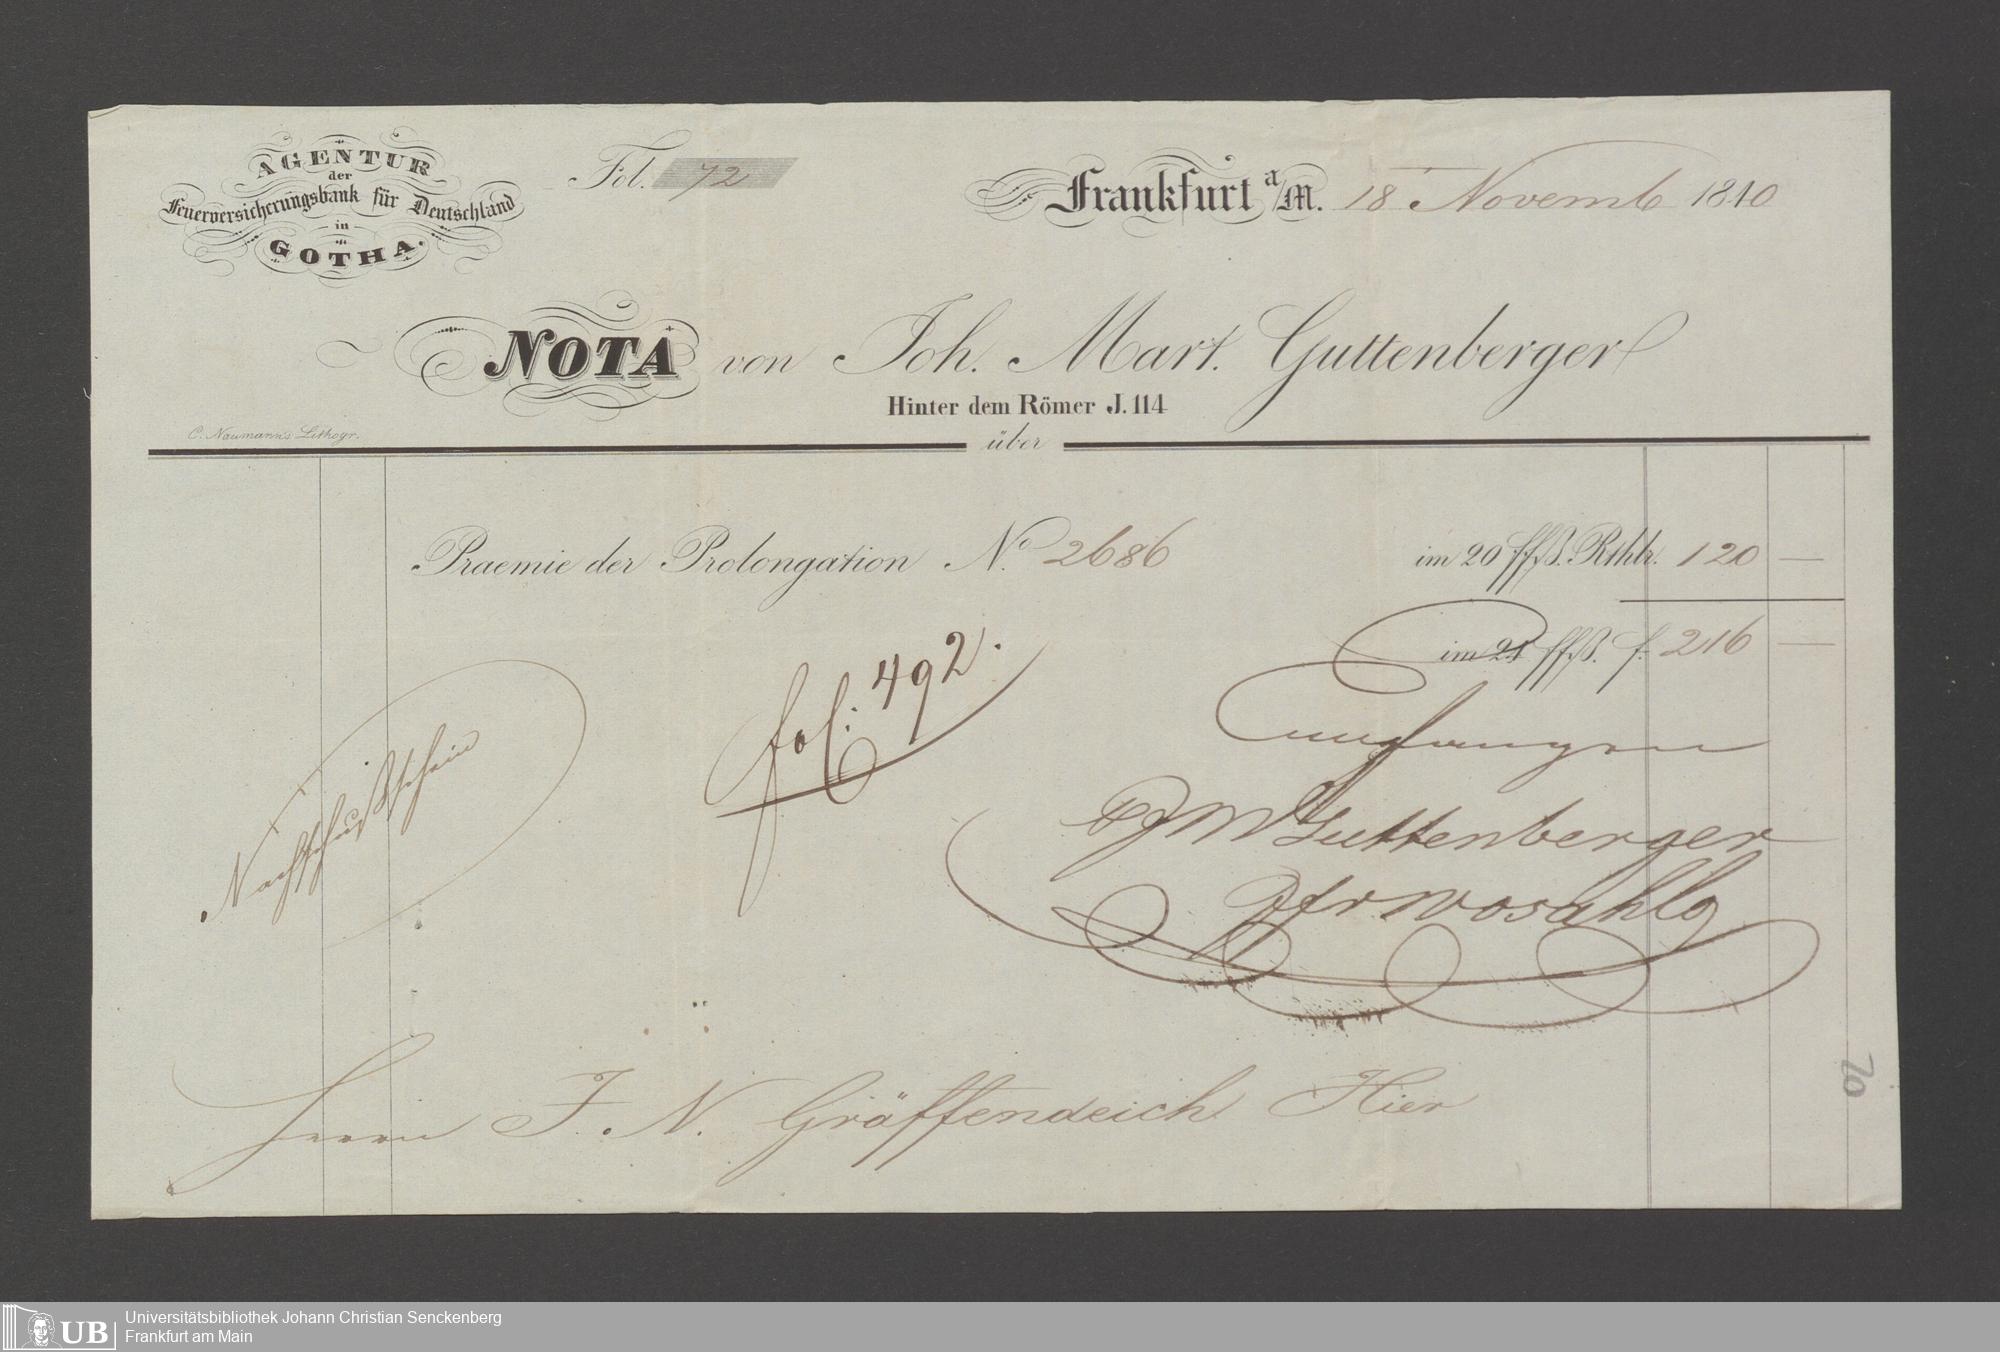 AGENTUR
der
Feuerversicherungsbank für Deutschland
in
GOTHA.
Fol. 72
Frankfurt a/M. 18 Novemb 1840
NOTA von Joh. Mart. Guttenberger
Hinter dem Römer J. 114
C. Naumann's Lithogr.
über
Praemie der Prolongation No. 2686 im 20 ffß. Rthlr. 120 —
im 24 ffß. f. 216 —
fol: 492.
empfangen
Nachschußschein
JM Guttenberger
Herrn J. N. Gräffendeich Hier
70
UB
Universitätsbibliothek Johann Christian Senckenberg
Frankfurt am Main